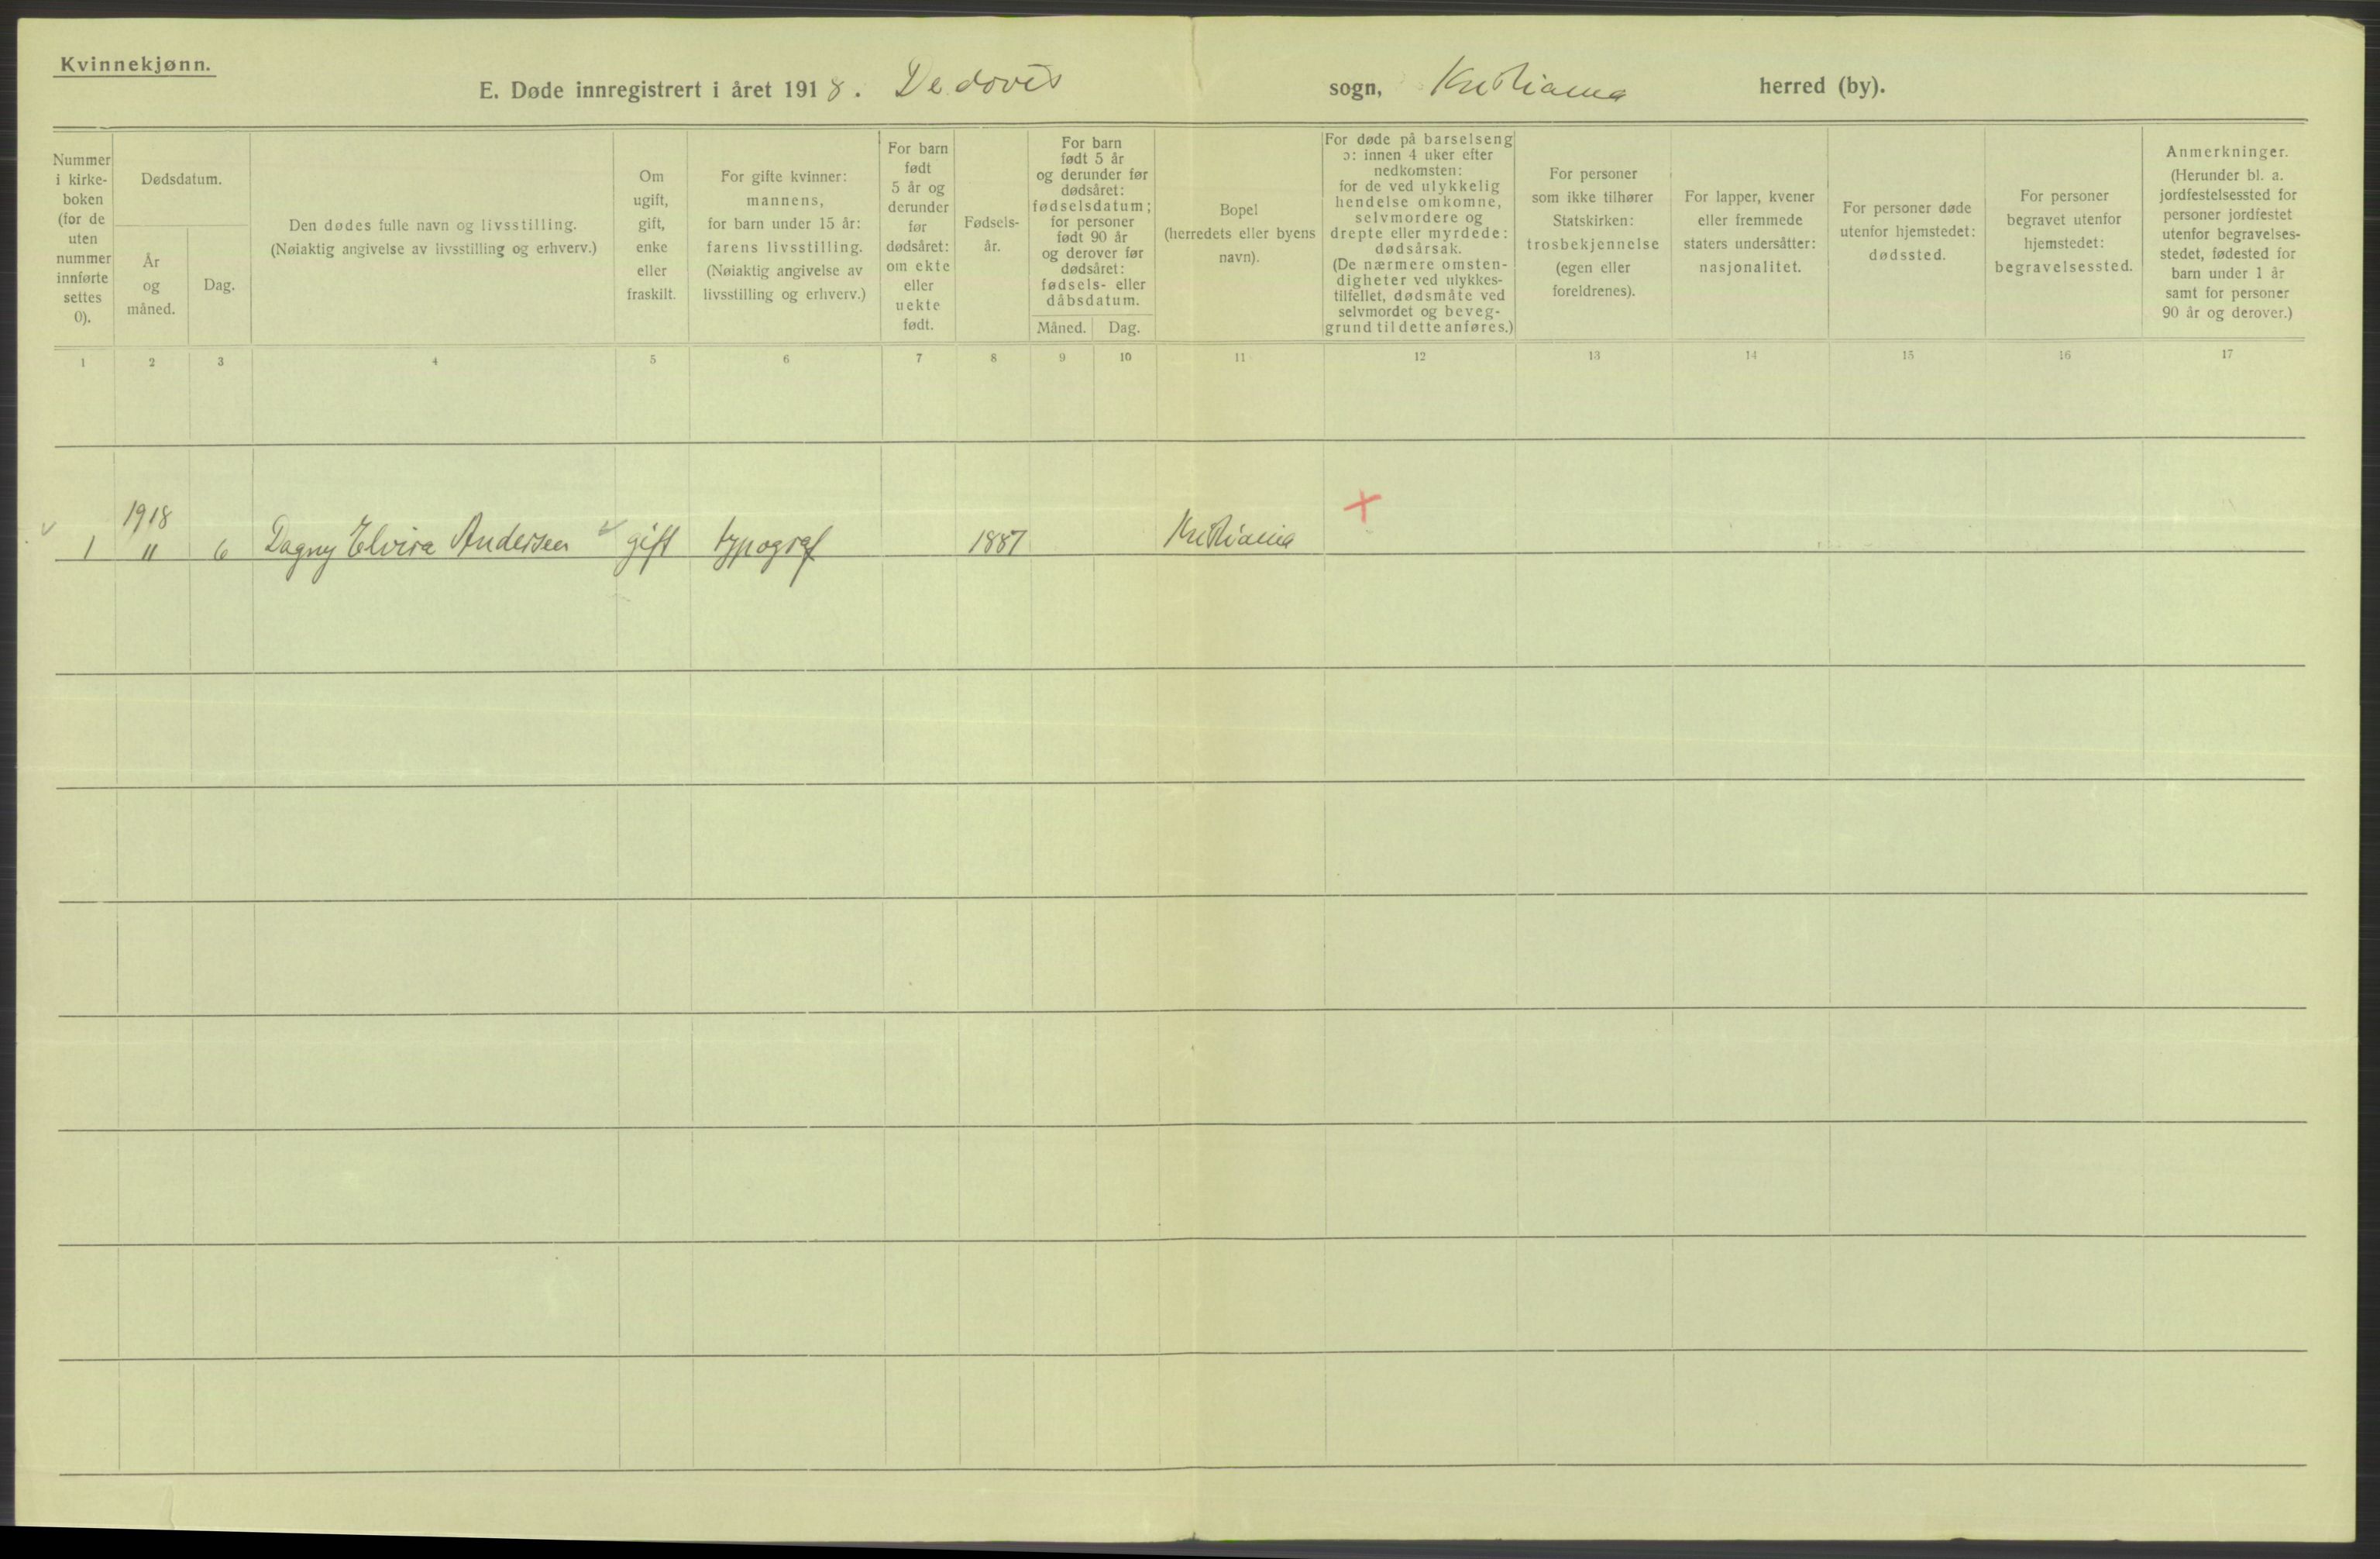 Kvinnekjønn.
E. Døde innregistrert i året 1918. De døves sogn, Kristiania herred (by).
Nummer
i kirke-
boken
(for de
uten
nummer
innførte
settes
0).
Dødsdatum.
År
og
måned.
Dag.
Den dødes fulle navn og livsstilling.
(Nøiaktig angivelse av livsstilling og erhverv.)
Om
ugift,
gift,
enke
eller
fraskilt.
For gifte kvinner:
mannens,
for barn under 15 år:
farens livsstilling.
(Nøiaktig angivelse av
livsstilling og erhverv.)
For barn
født
5 år og
derunder
før
dødsåret:
om ekte
eller
uekte
født.
Fødsels-
år.
For barn
født 5 år
og derunder før
dødsåret:
fødselsdatum;
for personer
født 90 år
og derover før
dødsåret:
fødsels- eller
dåbsdatum.
Måned. Dag.
Bopel
(herredets eller byens
navn).
For døde på barselseng
ɔ: innen 4 uker efter
nedkomsten:
for de ved ulykkelig
hendelse omkomne,
selvmordere og
drepte eller myrdede:
dødsårsak.
(De nærmere omsten-
digheter ved ulykkes-
tilfellet, dødsmåte ved
selvmordet og beveg-
grund til dette anføres.)
For personer
som ikke tilhører
Statskirken:
trosbekjennelse
(egen eller
foreldrenes).
For lapper, kvener
eller fremmede
staters undersåtter:
nasjonalitet.
For personer døde
utenfor hjemstedet:
dødssted.
For personer
begravet utenfor
hjemstedet:
begravelsessted.
Anmerkninger.
(Herunder bl. a.
jordfestelsessted for
personer jordfestet
utenfor begravelses-
stedet, fødested for
barn under 1 år
samt for personer
90 år og derover.)
1 2 3 4 5 6 7 8 9 10 11 12 13 14 15 16 17
1918
1 11 6 Dagny Elvira Andersen gift typograf 1887 Kristiania